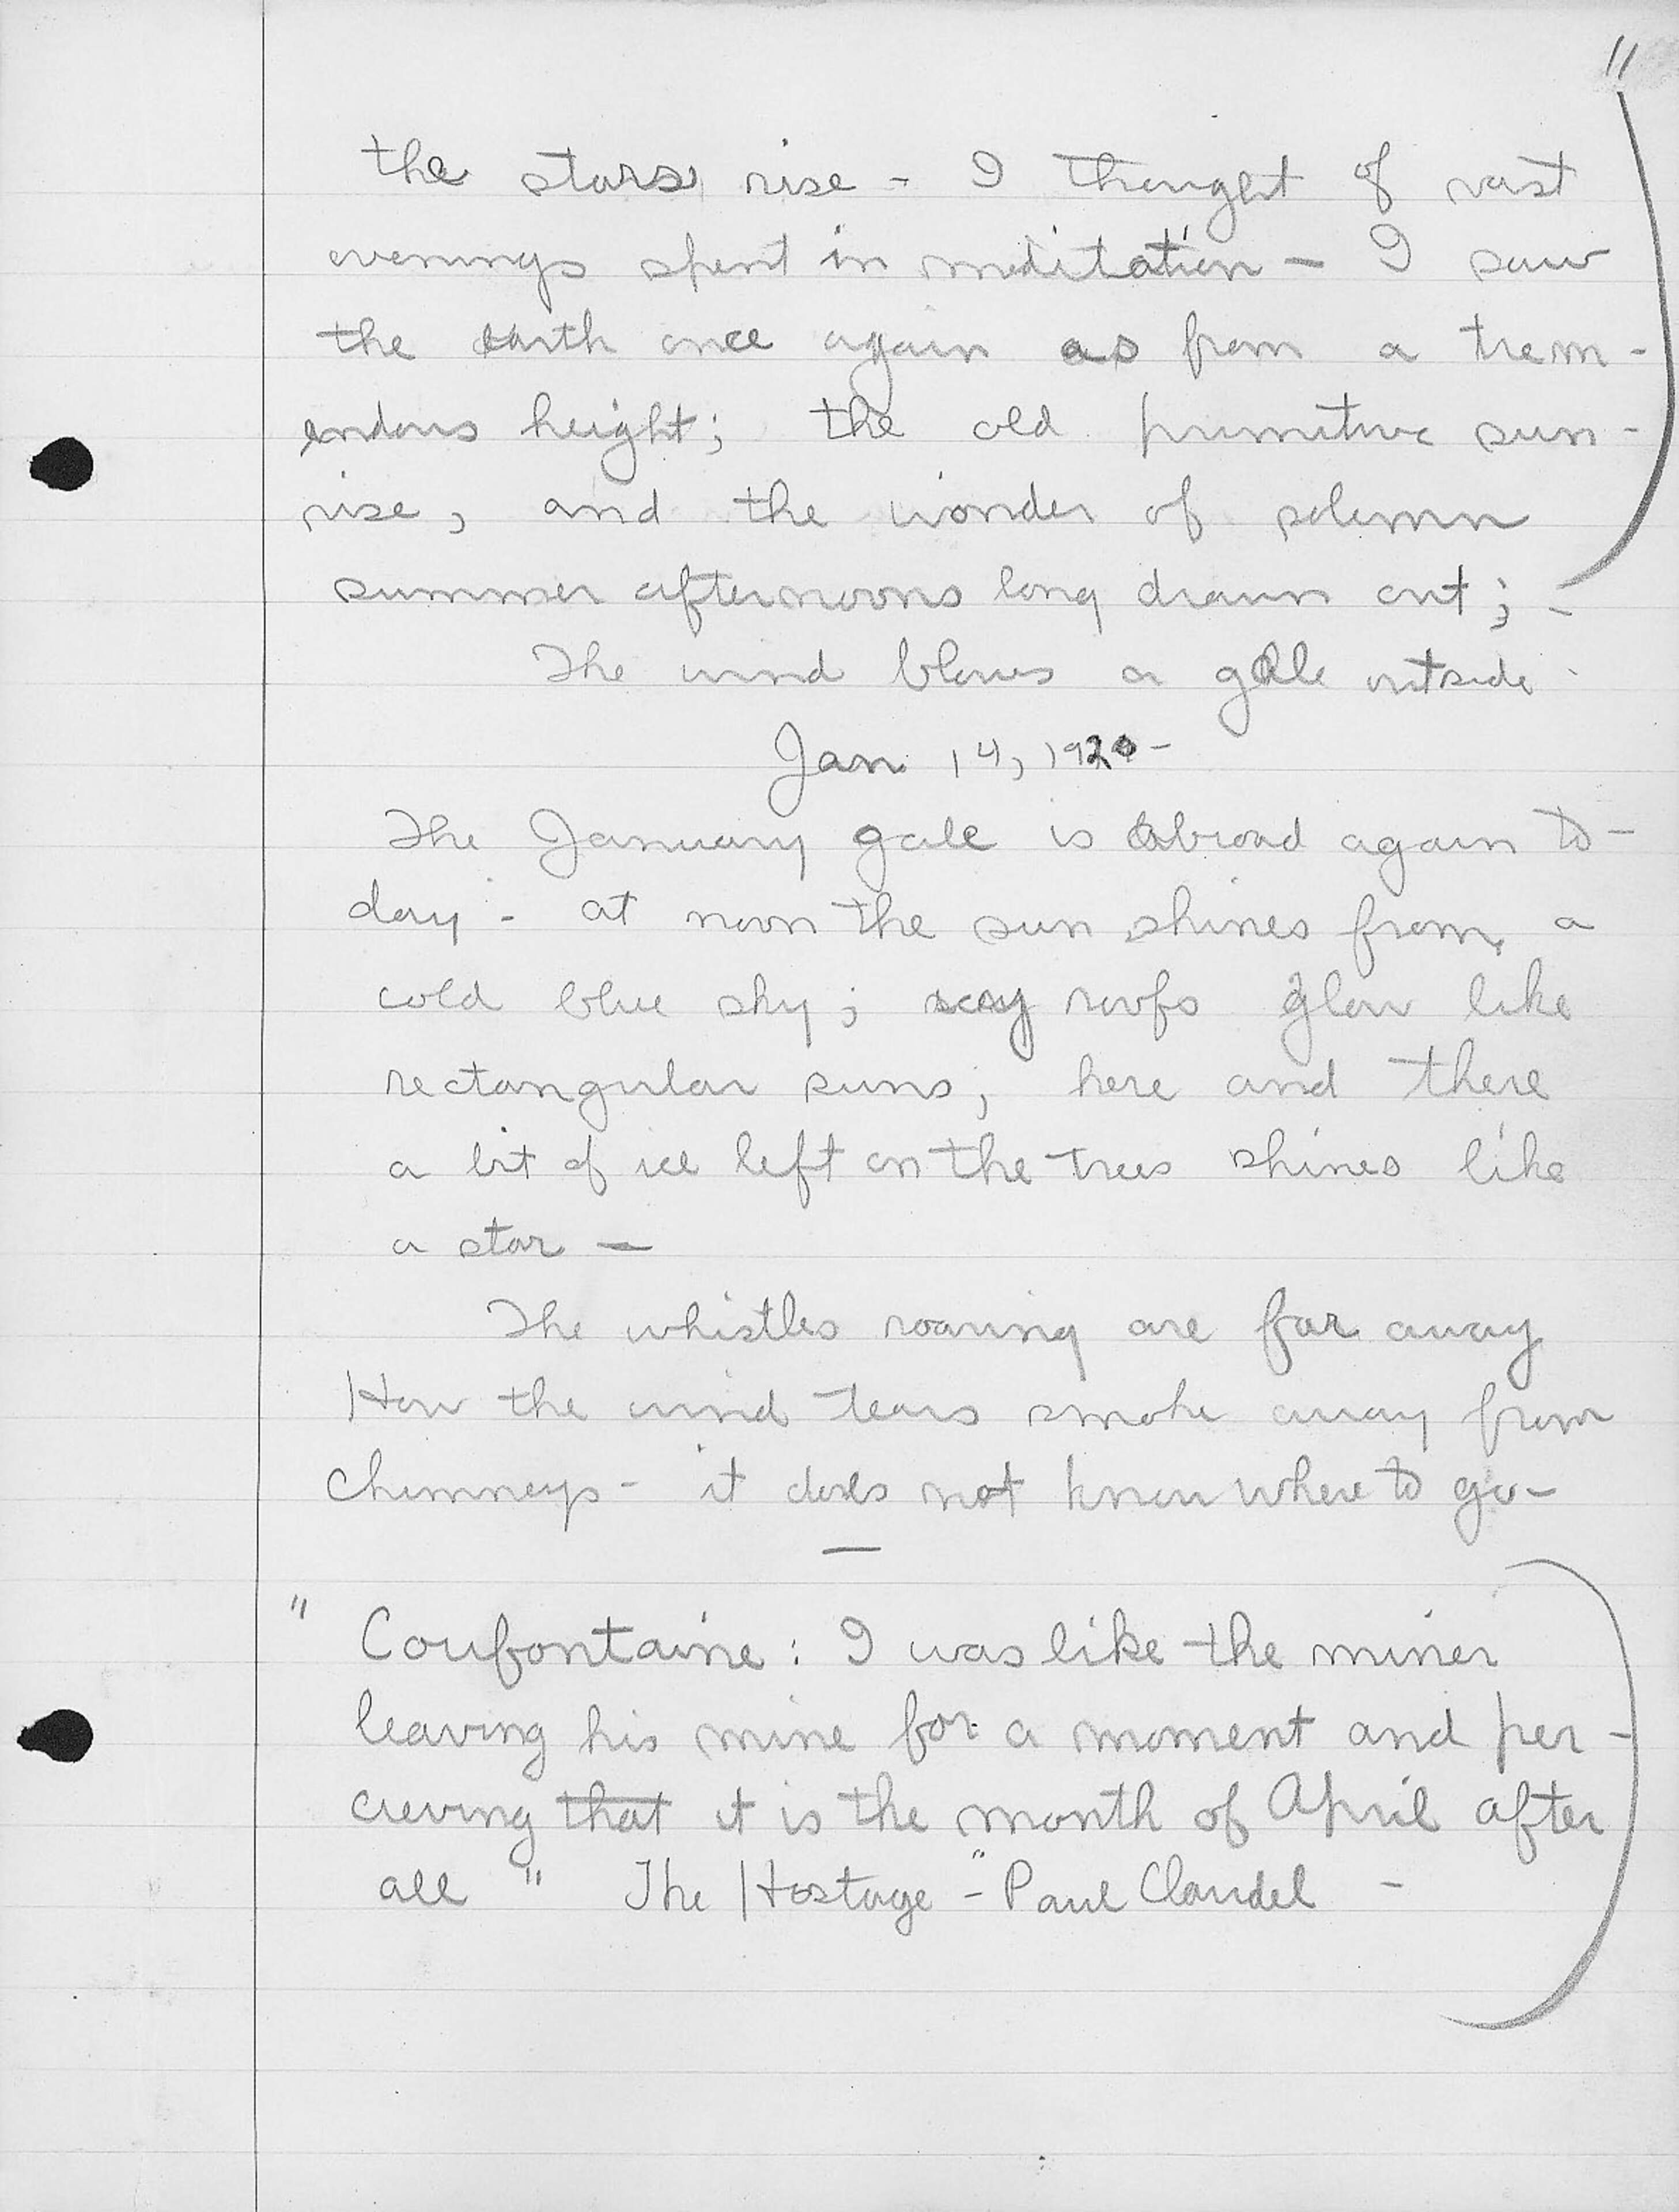 11
the stars rise - I thought of vast
evenings spent in meditation - I saw
the earth once again as from a trem-
endous height; the old primitive sun-
rise, and the wonder of solemn
summer afternoons long drawn out; -
The wind blows a gale outside
Jan 14, 1920 -
The January gale is abroad again to-
day - at noon the sun shines from a
cold blue sky; roofs glow like
rectangular suns; here and there
a bit of ice left on the trees shines like
a star —
The whistles roaring are far away
How the wind tears smoke away from
chimneys - it does not know where to go -
—
" Coufontaine : I was like the miner
leaving his mine for a moment and per-
cieving that it is the month of April after
all " The Hostage " - Paul Claudel -